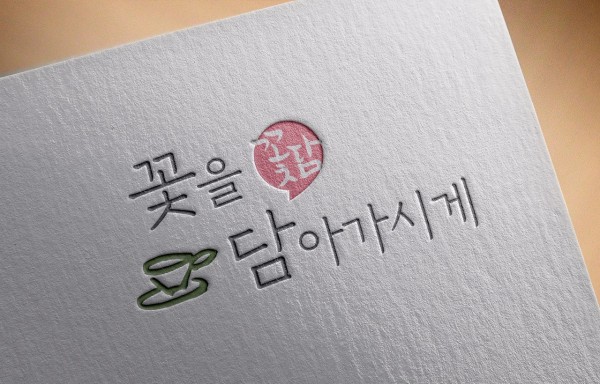 꽃을 꽃담
담아가시게